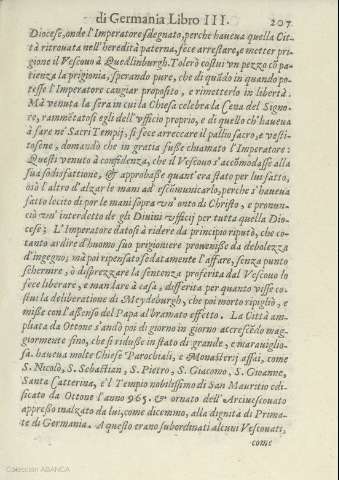 di Germania Libro III. 207
Diocese, onde l'Imperatore sdegnato, perche haueua quella Cit-
tà ritrouata nell'heredità paterna, fece arrestare, e metter pri-
gione il Vescouo à Quedlinburgh. Tolerò costui vn pezzo cõ pa-
tienza la prigionia, sperando pure, che di quãdo in quando po-
tesse l'Imperatore cangiar proposito, e rimetterlo in libertà.
Mà venuta la sera in cui la Chiesa celebra la Cena del Signo-
re, rammẽtatosi egli dell'vfficio proprio, e di quello ch'haueua
à fare ne' Sacri Tempij, si fece arreccare il pallio sacro, e vesti-
tosene, domandò che in gratia fusse chiamato l'Imperatore:
Questi venuto à confidenza, che il Vescouo s'accõmodasse alla
sua sodisfattione, & approbasse quant'era stato per lui fatto,
osò l'altro d'alzar le mani ad escõmunicarlo, perche s'haueua
fatto lecito di por le mani sopra vn' onto di Christo, e pronun-
ciò vn' interdetto de gli Diuini vfficij per tutta quella Dio-
cese; L'Imperatore datosi à ridere da principio riputò, che co-
tanto ardire d'huomo suo prigioniere proueniße da debolezza
d'ingegno; mà poi ripensato sedatamente l'affare, senza punto
schernire, ò disprezzare la sentenza proferita dal Vescouo lo
fece liberare, e mandare à casa, differita per quanto visse co-
stui la deliberatione di Meydeburgh, che poi morto ripigliò, e
miße con l'aßenso del Papa al bramato effetto. La Città am-
pliata da Ottone s'andò poi di giorno in giorno accrescẽdo mag-
giormente sino, che si riduße in stato di grande, e marauiglio-
sa. haueua molte Chiese Parochiali, e Monasterij assai, come
S. Nicolò, S. Sebastian, S. Pietro, S. Giacomo, S. Gioanne,
Santa Catterina, e'l Tempio nobilissimo di San Mauritio edi-
ficato da Ottone l'anno 965. & ornato dell'Arciuescouato
appreßo inalzato da lui, come dicemmo, alla dignità di Prima-
te di Germania. A questo erano subordinati alcuni Vescouati,
come
Colección ABANCA